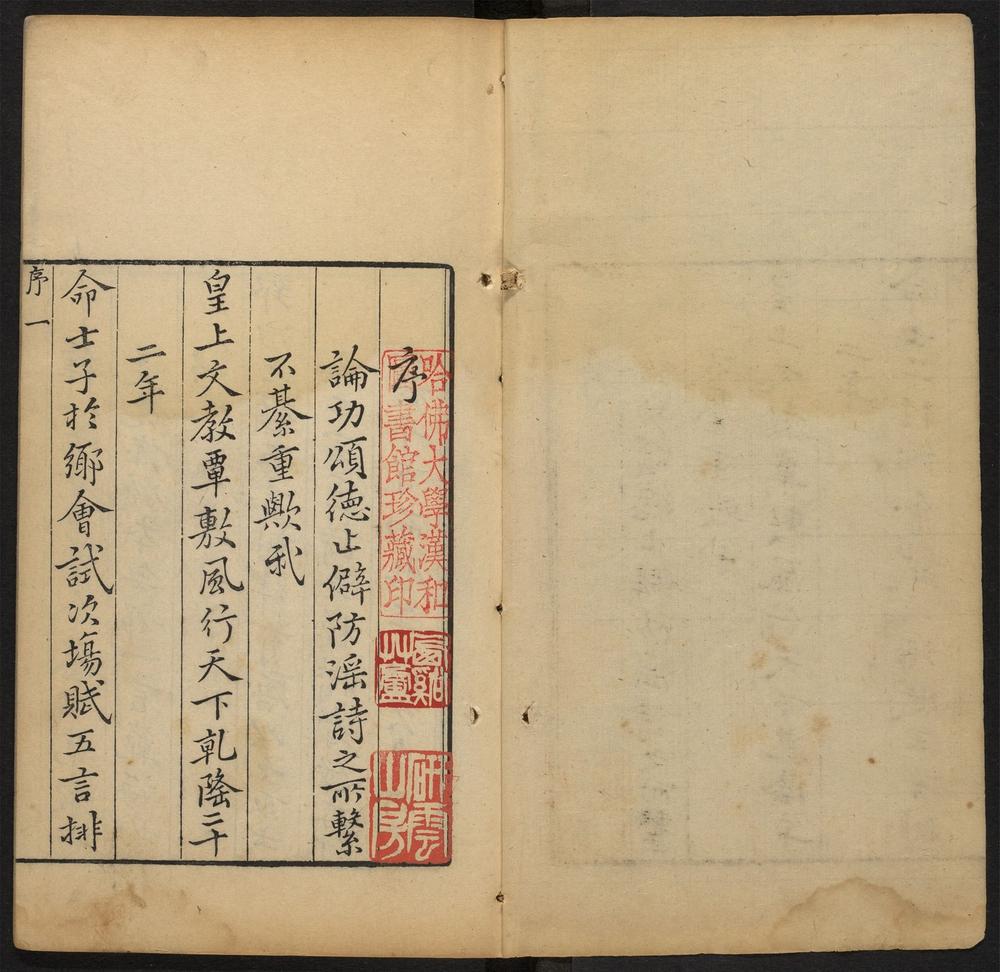 哈佛大學漢和
圖書館珍藏印
谿
艸廬
研雲
山房
序
論功頌徳止僻防滛詩之所繫
不綦重歟我
皇上文教覃敷風行天下乾隆二十
二年
命士子於鄉會試次場賦五言排
序 一